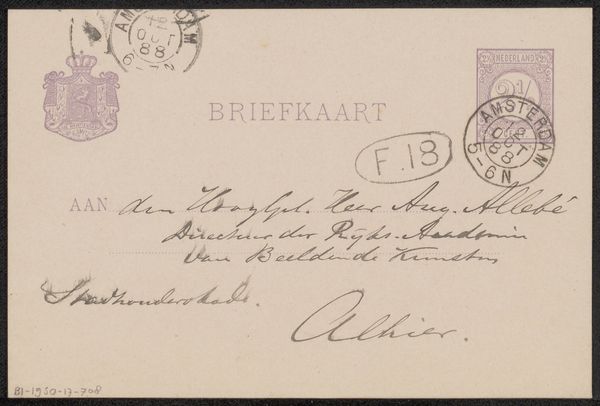 AMSTERDAM
OCT
88
NEDERLAND
2½
BRIEFKAART
AMSTERDAM
OCT
88
5-6N
F.18
AAN den Hooggel. Heer Aug. Allebé
Directeur der Rijks-Academie
van Beeldende Kunsten
Stadhouderskade.
Alhier.
BI-1950-17-708